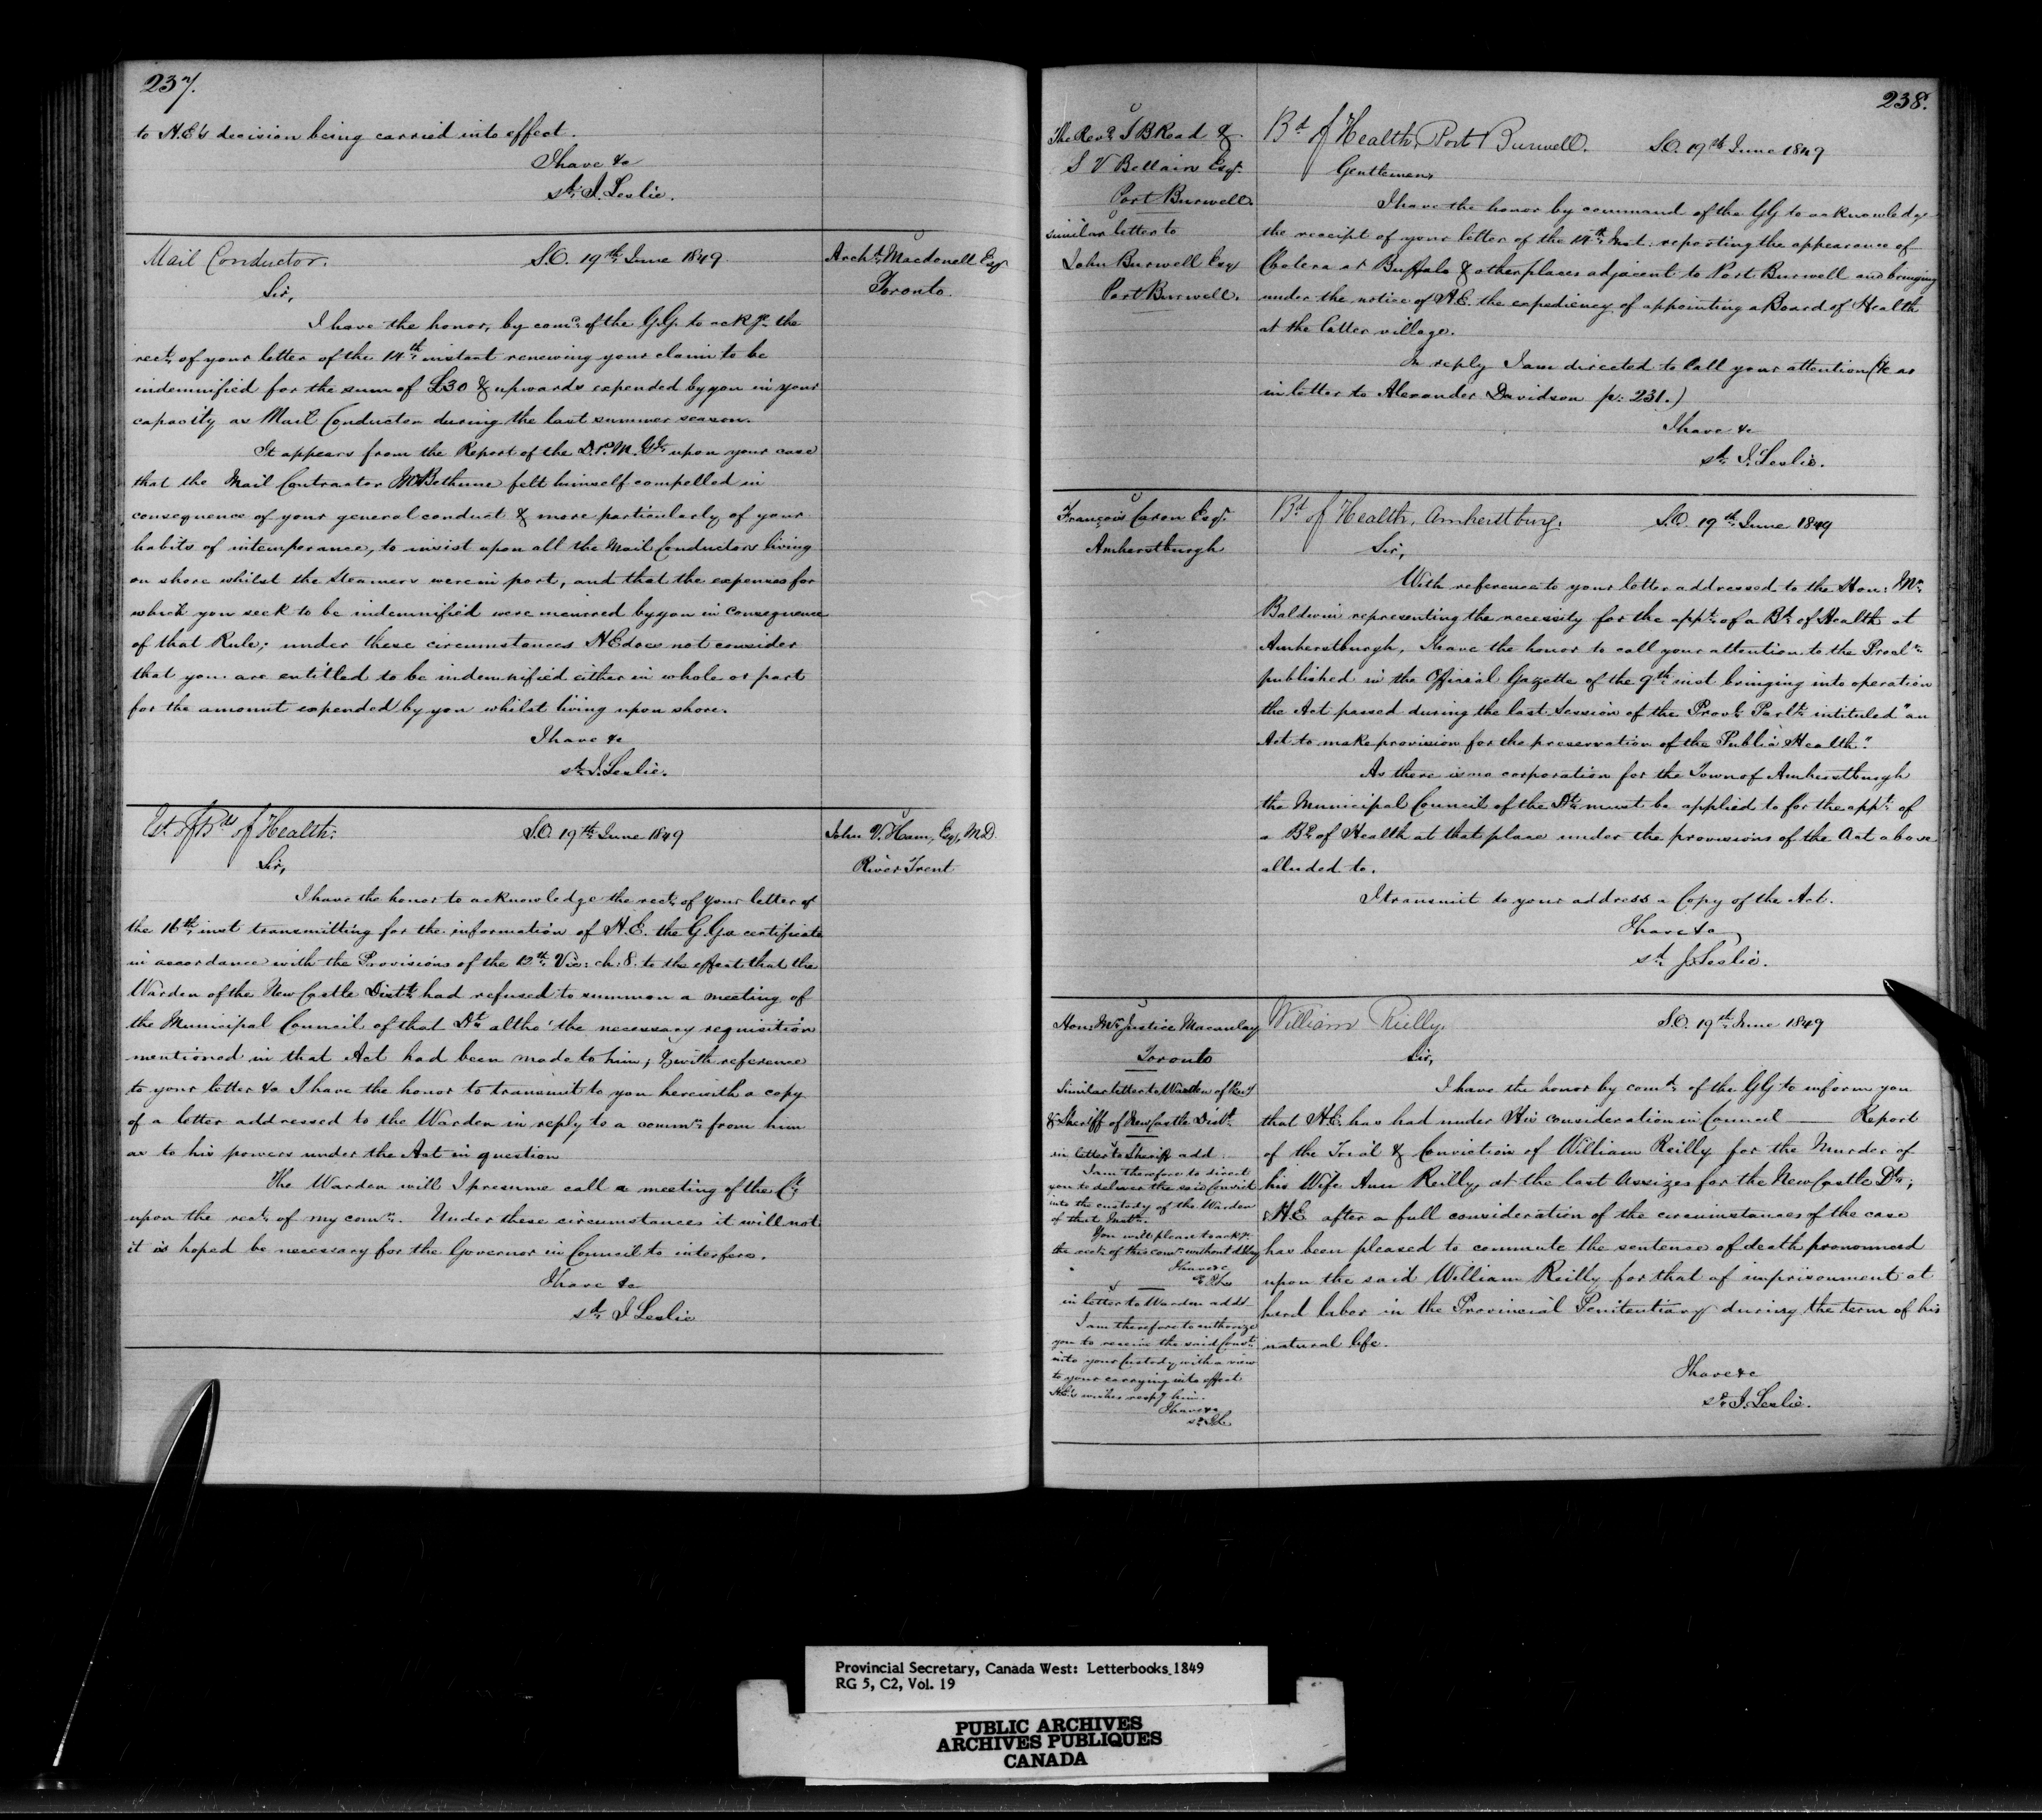 237.
to H.E's decision being carried into effect.
I have &c
sd. J. Leslie.
Mail Conductor. S.O. 19th June 1849
Archd. Macdonell Esqr
Toronto.
Sir,
I have the honor, by comd. of the G.G. to ackge. the
rect. of your letter of the 14th. instant renewing your claim to be
indemnified for the sum of £30 & upwards expended by you in your
capacity as Mail Conductor during the last summer season.
It appears from the Report of the D.P.M.Gl. upon your case
that the Mail Contractor Mr Bethune felt himself compelled in
consequence of your general conduct & more particularly of your
habits of intemperance, to insist upon all the Mail Conductors living
on shore whilst the Steamers were in port, and that the expenses for
which you seek to be indemnified were incurred by you in consequence
of that Rule; under these circumstances H.E does not consider
that you are entitled to be indemnified either in whole or part
for the amount expended by you whilst living upon shore.
I have &c
sd. J. Leslie.
Est. of Bds of Health. S.O. 19th June 1849
John V. Ham, Esq, M.D.
River Trent
Sir,
I have the honor to acknowledge the rect. of your letter of
the 16th. inst transmitting for the information of H.E. the G.G. a certificate
in accordance with the Provisions of the 12th. Vic: ch: 8. to the effect that the
Warden of the New Castle Distt. had refused to summon a meeting of
the Municipal Council of that Dt. altho' the necessary requisition
mentioned in that Act had been made to him; & with reference
to your letter &c I have the honor to transmit to you herewith a copy
of a letter addressed to the Warden in reply to a commn. from him
as to his powers under the Act in question
The Warden will I presume call a meeting of the Cl.
upon the rect. of my comn. Under these circumstances it will not
it is hoped be necessary for the Governor in Council to interfere.
I have &c
sd. J Leslie
238.
The Revd. T B Read &
S V Bellairs Esqr.
Port Burwell.
similar letter to
John Burwell Esq
Port Burwell.
Bd of Health, Port Burwell. S.O. 19th June 1849
Gentlemen,
I have the honor by command of the GG to acknowledge
the receipt of your letter of the 14th. Inst. reporting the appearance of
Cholera at Buffalo & other places adjacent to Port Burwell and bringing
under the notice of H.E. the expediency of appointing a Board of Health
at the latter village.
In reply I am directed to call your attention (&c as
in letter to Alexander Davidson p: 231.)
I have &c
sd. J. Leslie.
François Caron Esqr.
Amherstburgh
Bd of Health, Amherstburg. S.O. 19th. June 1849
Sir,
With reference to your letter addressed to the Hon: Mr.
Baldwin representing the necessity for the appt. of a Bd. of Health at
Amherstburgh, I have the honor to call your attention to the Procln.
published in the Official Gazette of the 9th. inst bringing into operation
the Act passed during the last Session of the Provl. Parlt. intituled "an
Act to make provision for the preservation of the Public Health."
As there is no corporation for the Town of Amherstburgh
the Municipal Council of the Dt. must be applied to for the appt. of
a Bd. of Health at that place under the provisions of the Act above
alluded to.
I transmit to your address a Copy of the Act.
I have &c
sd. J. Leslie.
Hon: Mr. Justice Macaulay
Toronto
Similar letter to Warden of Peny
& Sheriff of New Castle Distt.
in letter to Sheriff add
I am therefore to direct
you to deliver the said Convict
into the custody of the Warden
of that Instn.
You will please to ackge.
the rect. of this comn. without delay
I have &c
in letter to Warden add
I am therefore to authorize
you to receive the said Convt.
into your Custody with a view
to your carrying into effect
H.E's wishes respg him.
I have &c
sd. JL
William Reilly. S.O. 19th. June 1849
Sir,
I have the honor by comd. of the GG to inform you
that H.E. has had under His consideration in Council — Report
of the Trial & Conviction of William Reilly for the Murder of
his Wife Ann Reilly, at the last Assizes for the New Castle Dt.;
H.E after a full consideration of the circumstances of the case
has been pleased to commute the sentence of death pronounced
upon the said William Reilly for that of imprisonment at
hard labor in the Provincial Penitentiary during the term of his
natural life.
I have &c
sd. J. Leslie.
Provincial Secretary, Canada West: Letterbooks 1849
RG 5, C2, Vol. 19
PUBLIC ARCHIVES
ARCHIVES PUBLIQUES
CANADA